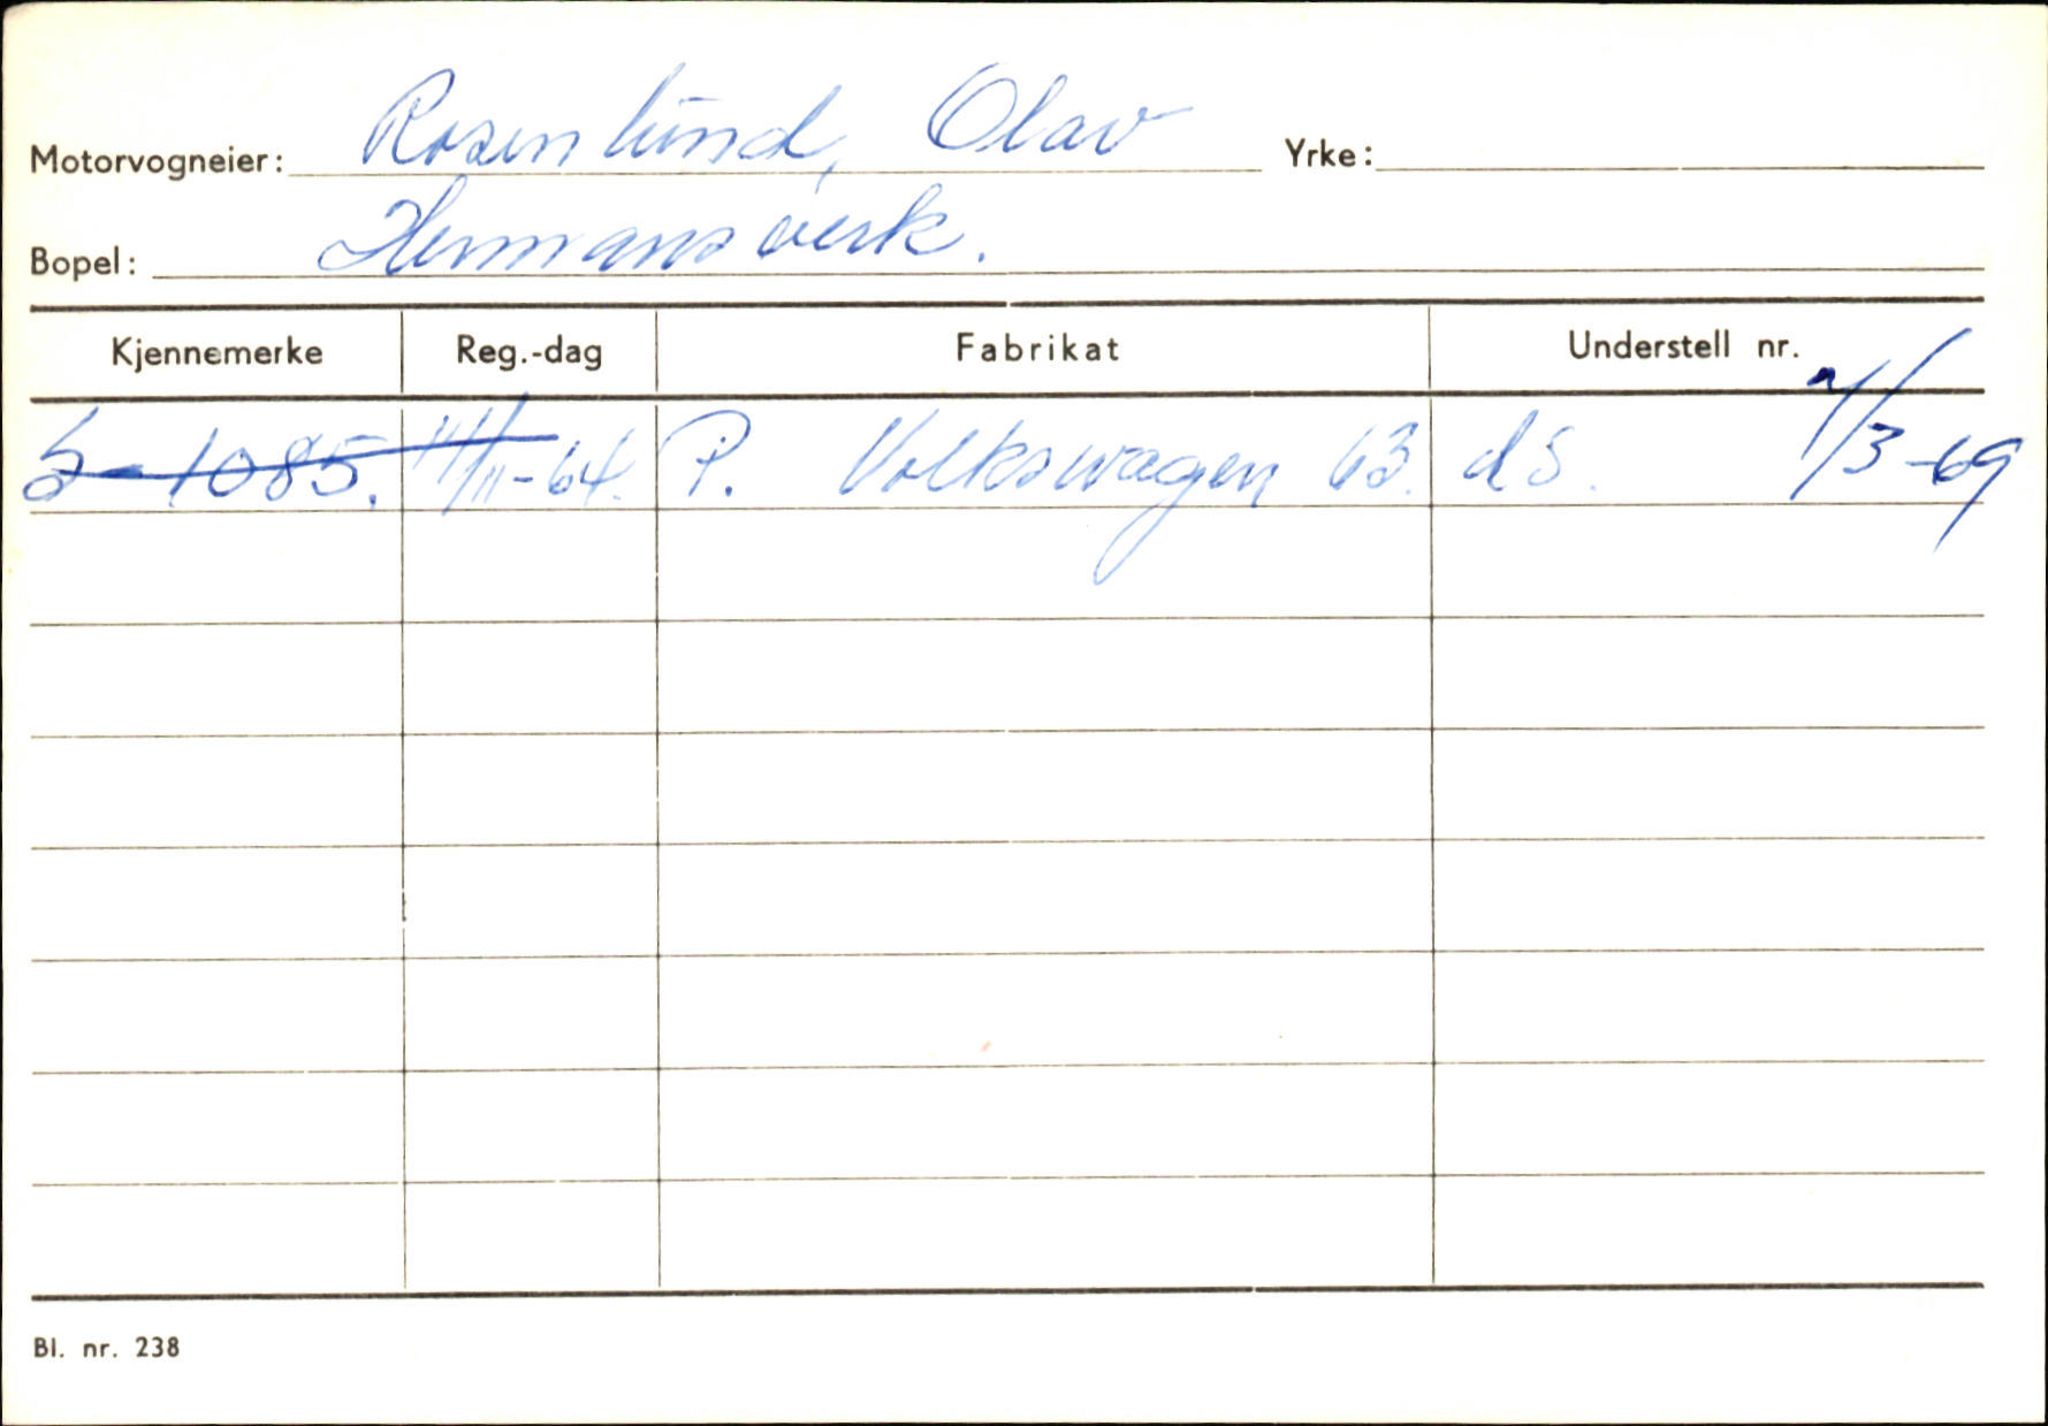 Motorvogneier: Rosenlund, Olav Yrke:
Bopel: Hermansverk.
Kjennemerke Reg.-dag Fabrikat Understell nr.
S-1085. 11/11-64. P. Volkswagen 63. d.s. 1/3-69
Bl. nr. 238